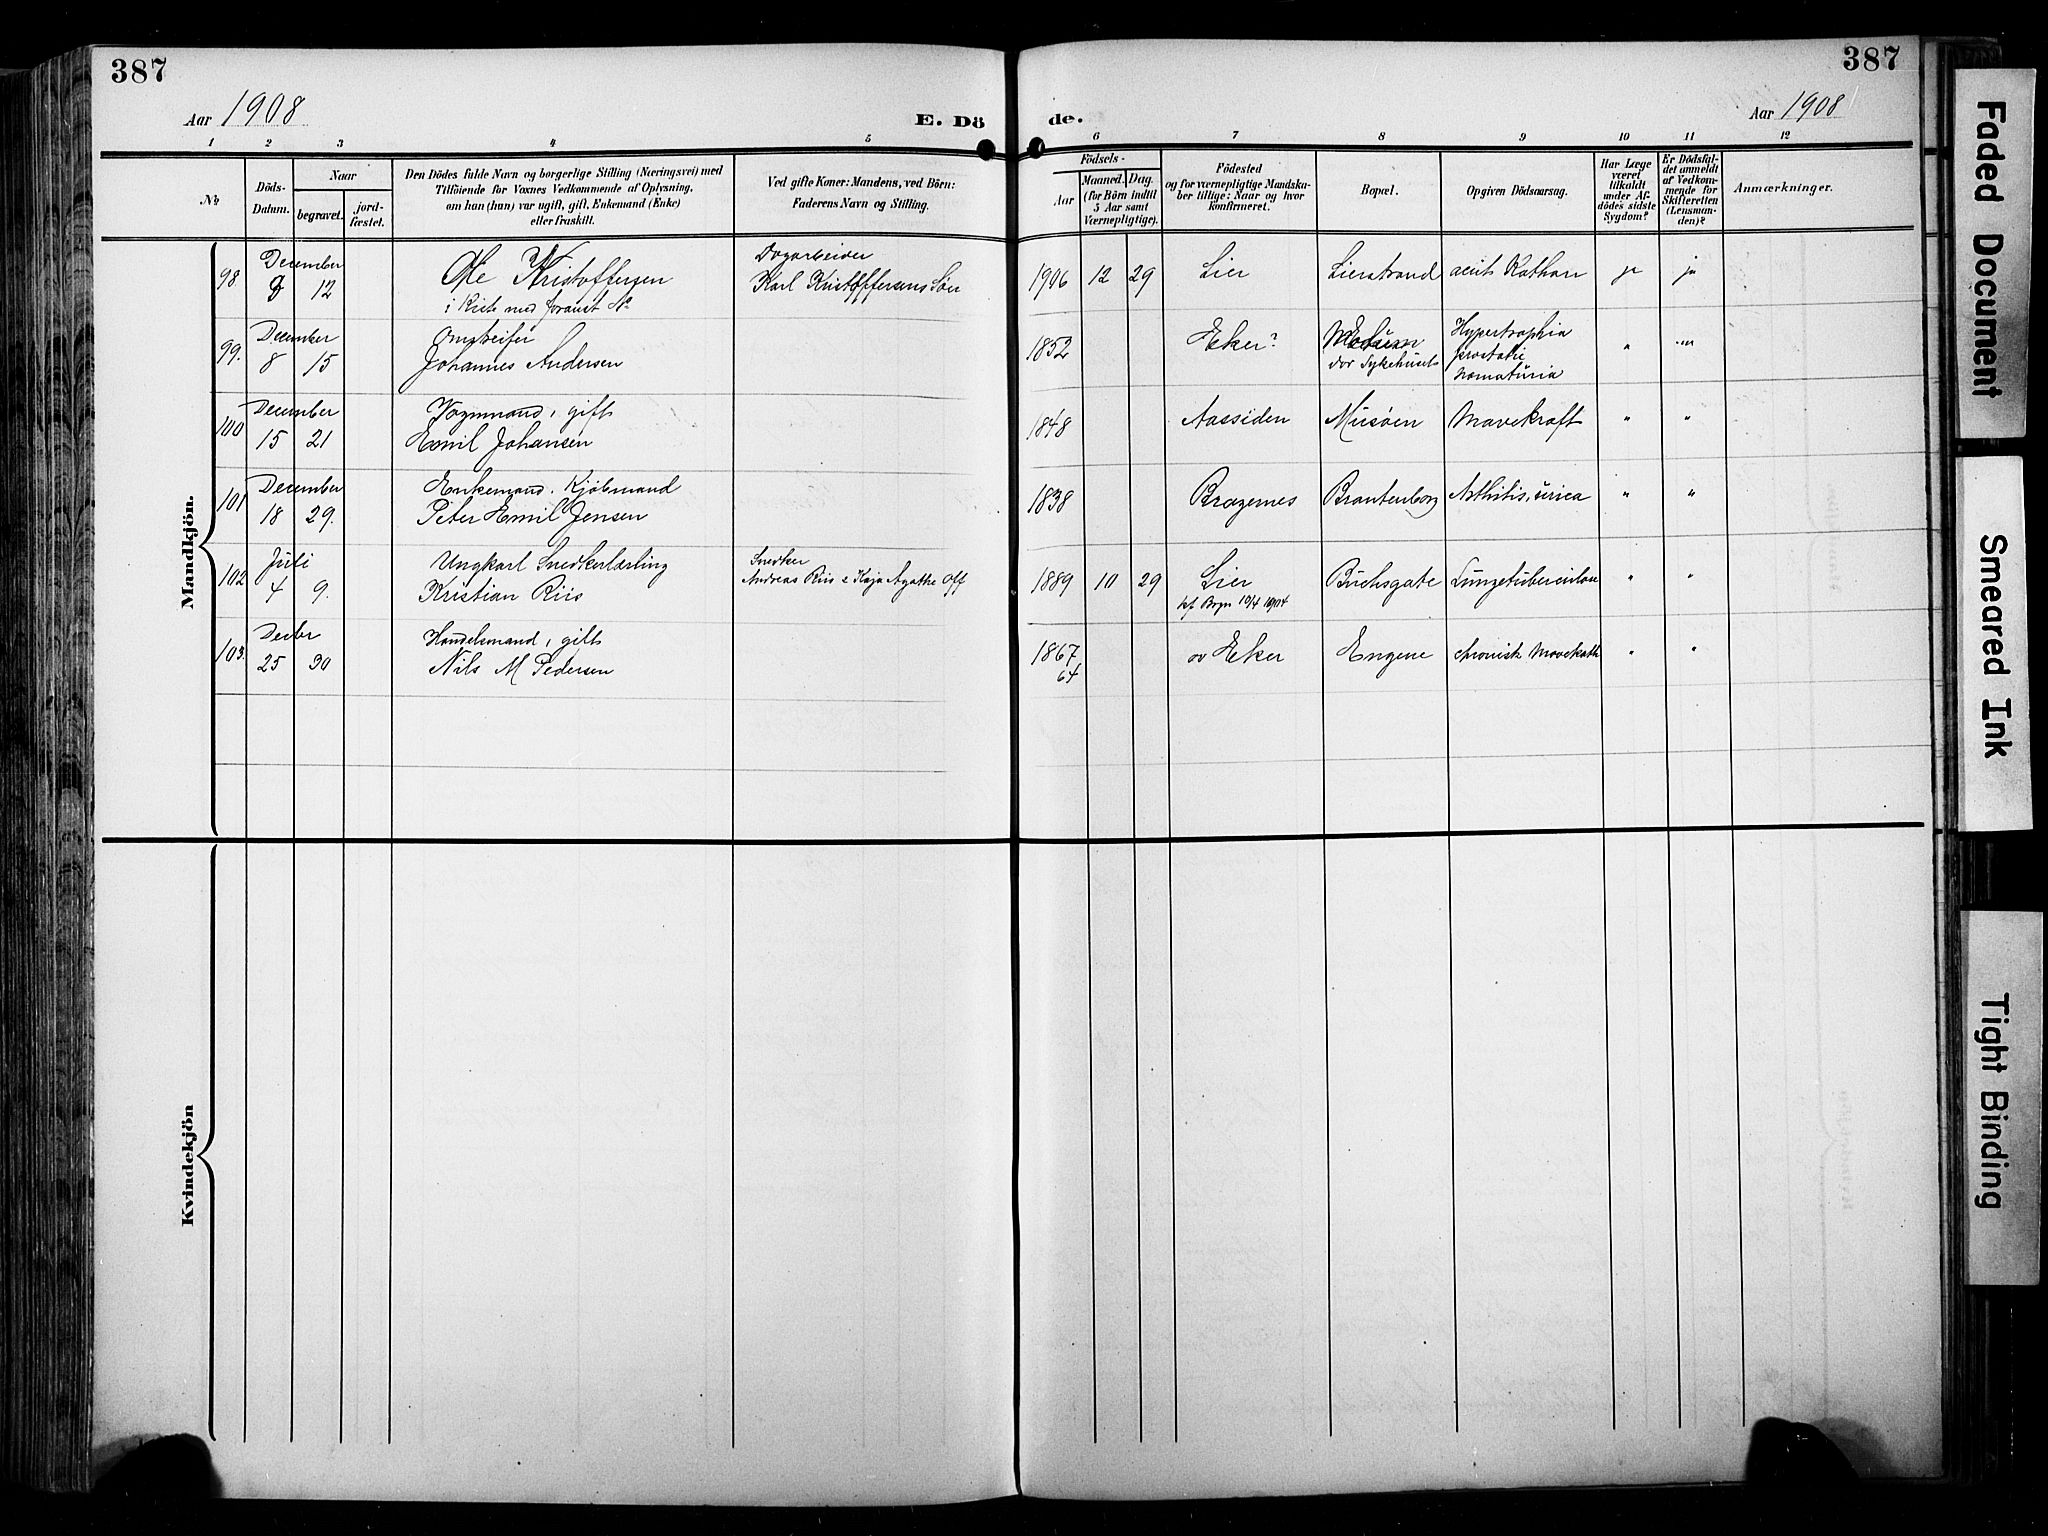 387
387
Aar 1908
E. Dö
de.
Aar 1908
1 2 3 4 5 6 7 8 9 10 11 12
No
Döds-
Datum.
Naar
begravet.
jord-
fæstet.
Den Dödes fulde Navn og borgerlige Stilling (Næringsvei) med
Tilföiende for Voxnes Vedkommende af Oplysning,
om han (hun) var ugift, gift, Enkemand (Enke)
eller fraskilt.
Ved gifte Koner: Mandens, ved Börn:
Faderens Navn og Stilling.
Födsels-
Aar
Maaned.
Dag.
(for Börn indtil
5 Aar samt
Værnepligtige).
Födested
og for værnepligtige Mandska-
ber tillige: Naar og hvor
konfirmeret.
Bopæl.
Opgiven Dödsaarsag.
Har Læge
været
tilkaldt
under Af-
dödes sidste
Sygdom?
Er Dödsfal-
det anmeldt
af Vedkom-
mende for
Skifteretten
(Lensman-
den)?
Anmærkninger.
Mandkjön.
98. December 12
Ole Kristoffersen
i Kiste med foranst No
Dagarbeider
Karl Kristoffersens Søn
1906 12 29 Lier Lierstrand acut Katharr ja ja
99. December 8 15
Omstreifer
Johannes Andersen
1852 Eker? Sykehuset Hypertrophia
prostatæ
100 December 15 21
Vognmand, gift
Emil Johansen
1848 Aassiden Musøen Mavekræft " "
101 December 18 29.
Enkemand. Kjøbmand
Peter Emil Jensen
1838 Bragernes Brantenborg Arthitis, urica " "
102 Juli 4 9.
Ungkarl Snedkerlærling
Kristian Riis
Snedker
Andreas Riis & Kaja Agathe Off
1889 10 29 Lier Buchsgate " "
kf Brgn 10/4 1904
103. Decbr 25 30
Handelsmand, gift
Nils M Pedersen
1867 Eker Engene chronisk " "
64
Kvindekjön
Faded Document
Smeared Ink
Tight Binding